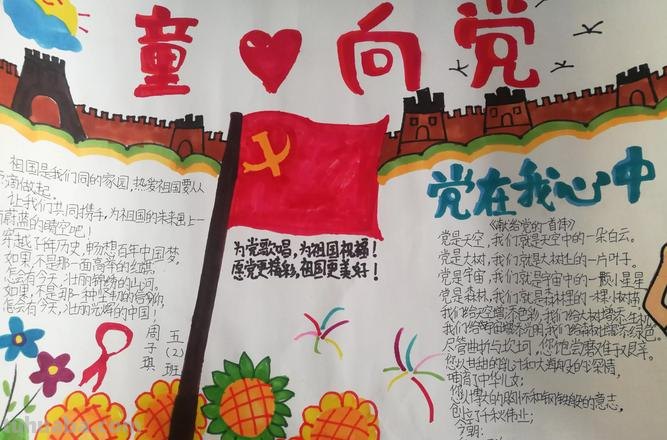 童心向党
祖国是我们同的家园,热爱祖国要从
滴做起。
让我们共同携手,为祖国的未来画上一
蔚蓝的晴空吧!
穿越千年历史,畅想百年中国梦,
如果不是那一面高举的红旗,
怎会有今天,壮丽锦绣的山河。
如果,不是那一种坚韧的信仰,
怎会有今天,壮丽光辉的中国,
五(2)班
周子琪
为党歌唱,为祖国祝福!
愿党更精彩,祖国更美好!
党在我心中
《献给党的一首诗》
党是天空,我们就是天空中的一朵白云。
党是大树,我们就是大树上的一片叶子。
党是宇宙,我们就是宇宙中的一颗小星星
党是森林,我们就是森林里的一棵小树苗
我们给天空增不色彩,我们给大树增添生机
我们给宇宙增添光明我们给森林增添绿色。
尽管曲折与坎坷,您饱尝磨难于艰辛。
您以甘甜的乳汁和大海般的深情,
哺育了中华儿女;
您以博大的胸怀和钢铁般的意志,
创立了千秋伟业;
今朝